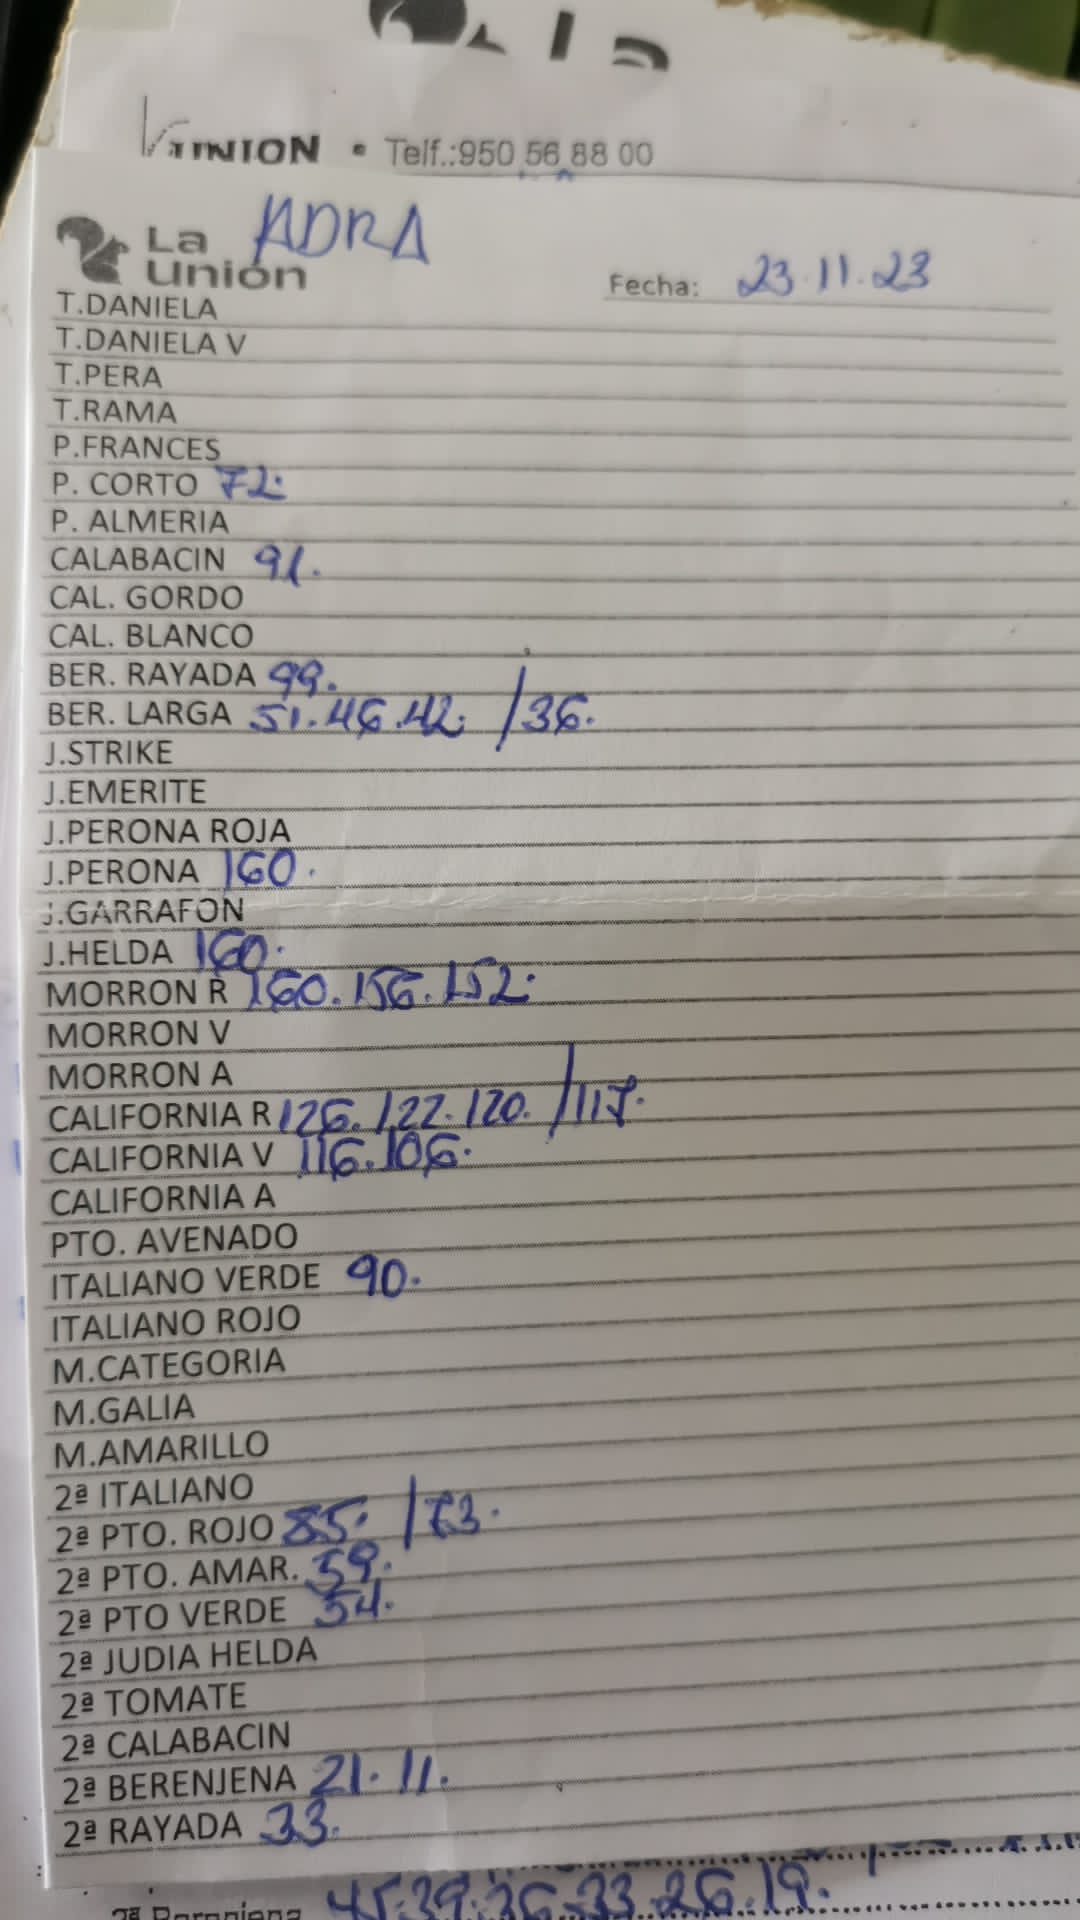 La
UNION • Telf.:950 56 88 00
La Unión ADRA
Fecha: 23.11.23
T.DANIELA
T.DANIELA V
T.PERA
T.RAMA
P.FRANCES
P. CORTO 72.
P. ALMERIA
CALABACIN 91.
CAL. GORDO
CAL. BLANCO
BER. RAYADA 99.
BER. LARGA 51.46.42. /36.
J.STRIKE
J.EMERITE
J.PERONA ROJA
J.PERONA 160.
J.GARRAFON
J.HELDA 160.
MORRON R 160.156.152.
MORRON V
MORRON A
CALIFORNIA R 126.122.120. /117.
CALIFORNIA V 116.106.
CALIFORNIA A
PTO. AVENADO
ITALIANO VERDE 90.
ITALIANO ROJO
M.CATEGORIA
M.GALIA
M.AMARILLO
2ª ITALIANO
2ª PTO. ROJO 85. /73.
2ª PTO. AMAR. 59.
2ª PTO VERDE 54.
2ª JUDIA HELDA
2ª TOMATE
2ª CALABACIN
2ª BERENJENA 21.11.
2ª RAYADA 33.
45.39.36.33.26.19.